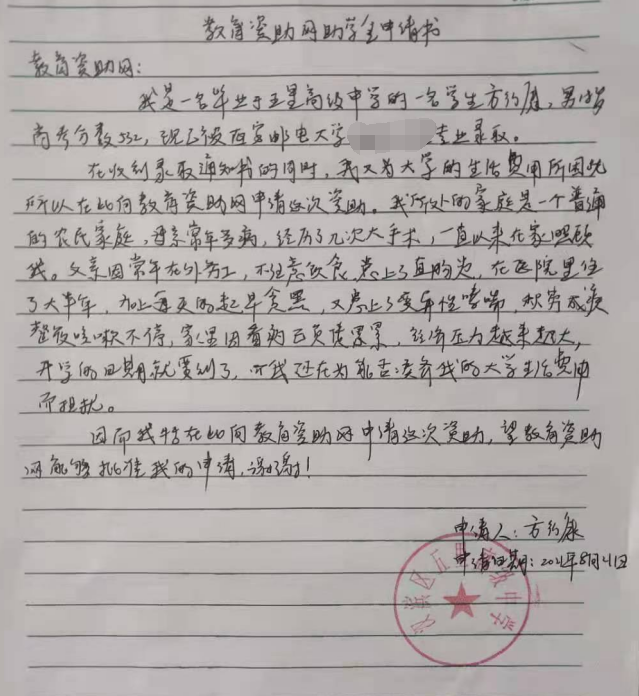 教育资助网助学生申请书
教育资助网:
我是一名毕业于五星高级中学的一名学生方约康, 男, 18岁
高考分数532, 现已被西安邮电大学 专业录取。
在收到录取通知书的同时, 我又为大学的生活费用所困扰
所以在此向教育资助网申请这次资助。我所处的家庭是一个普通
的农民家庭, 母亲常年多病, 经历了几次大手术, 一直以来在家照顾
我。父亲因常年在外务工, 不注意饮食, 患上了直肠炎, 在医院里住
了大半年, 加上每天的起早贪黑, 又患上了变异性哮喘, 积劳成疾
整夜咳嗽不停, 家里因看病已负债累累, 经济压力越来越大,
开学的日期就要到了, 可我还在为能否凑齐我的大学生活费用
而担扰。
因而我特在此向教育资助网申请这次资助, 望教育资助
网能够批准我的申请, 谢谢!
申请人: 方约康
申请日期: 2021年8月21日
滨区五星高级中学